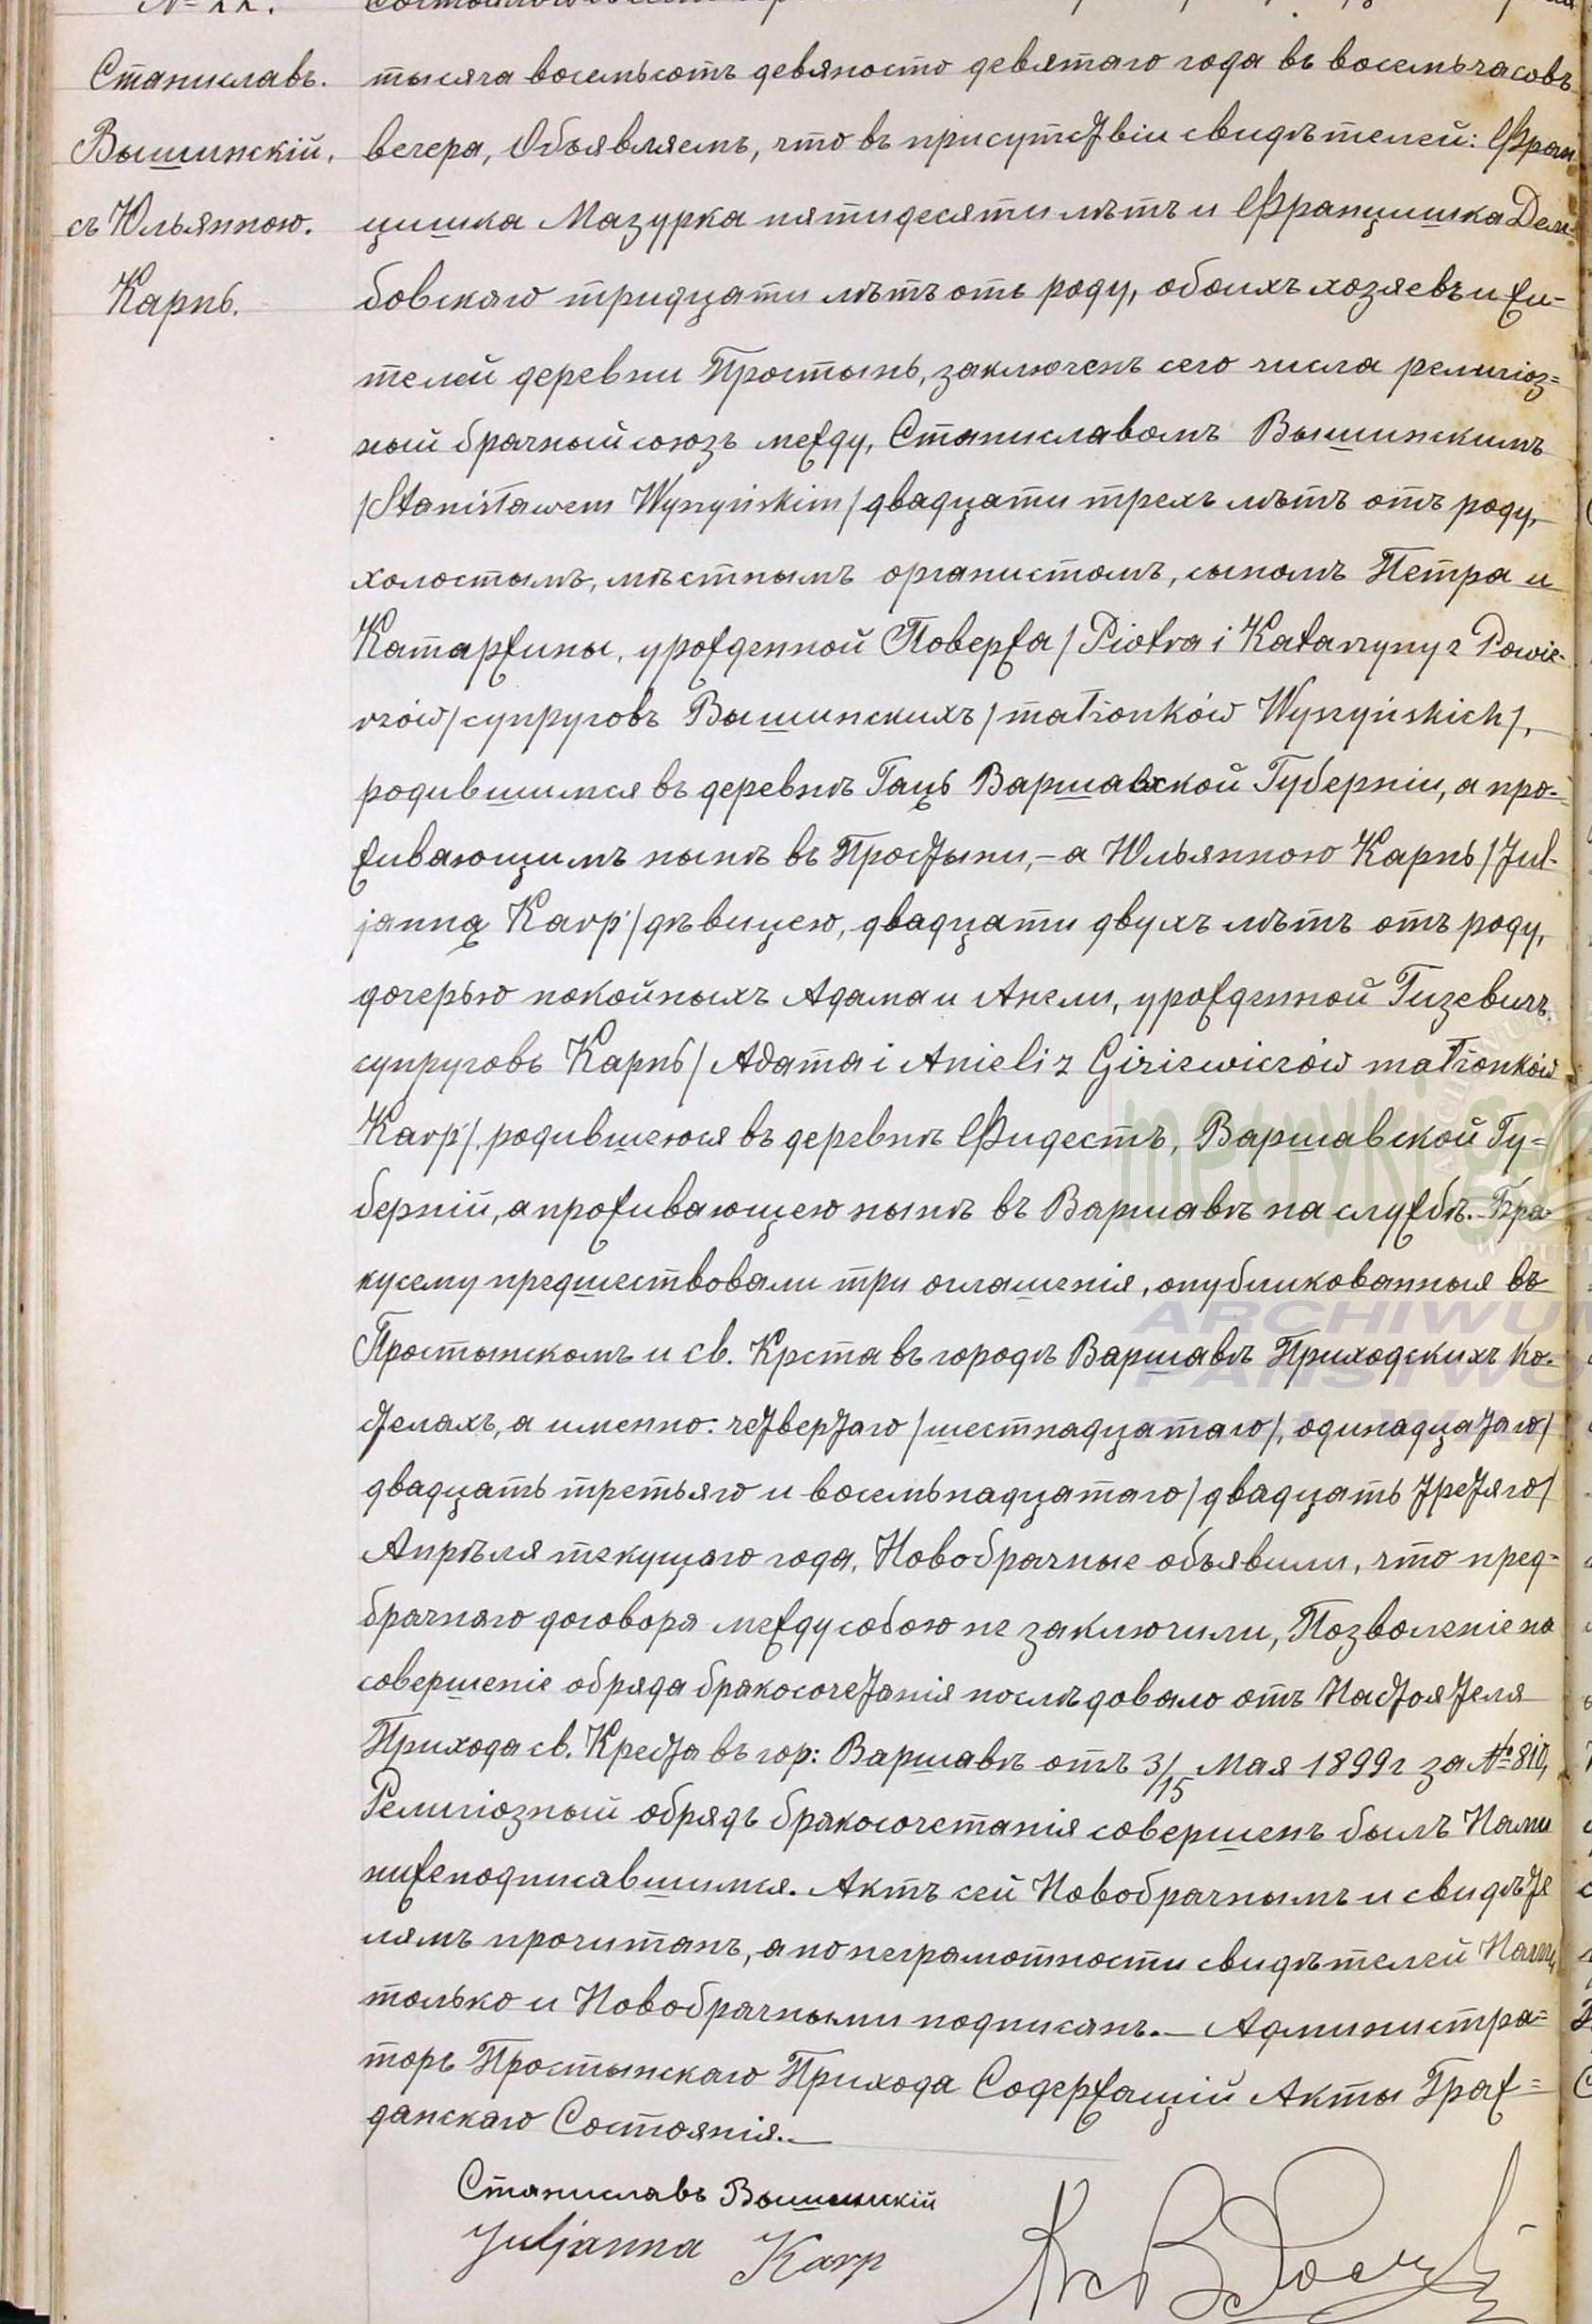 Станиславъ.
Вышинскій,
съ Юльянною.
Карпь.
тысяча восемьсотъ девяносто девятаго года въ восемь часовъ
вечера, Объявляемъ, что въ присутствіи свидѣтелей: Фран
цишка Мазурка пятидесяти лѣтъ и Францишка Дем-
бовскаго тридцати лѣтъ отъ роду, обоихъ хозяевъ и жи-
телей деревни Простынь, заключенъ сего числа религіоз=
ный брачный союзъ между, Станиславомъ Вышинскимъ
/Stanisławem Wyszyńskim/ двадцати трехъ лѣтъ отъ роду,
холостымъ, мѣстнымъ органистомъ, сыномъ Петра и
Катаржины, урожденной Повержа /Piotra i Katarzyny z Powie-
rzów/ супруговъ Вышинскихъ /małżonków Wyszyńskich/,
родившимся въ деревнѣ Гаць Варшавской Губерніи, а про-
живающимъ нынѣ въ Простыни,- а Юльянною Карпь /Jul-
janną Karp'/ дѣвицею, двадцати двухъ лѣтъ отъ роду,
дочерью покойныхъ Адама и Анели, урожденной Гизевичъ,
супруговъ Карпь /Adama i Anieli z Giziewiczów małżonków
Karp'/, родившеюся въ деревнѣ Фидестъ, Варшавской Гу=
берніи, а проживающею нынѣ въ Варшавѣ на службѣ. Бра-
ку сему предшествовали три оглашенія, опубликованныя въ
Простынскомъ и св. Крста въ городѣ Варшавѣ Приходскихъ Ко-
стелахъ, а именно: четвертаго /шестнадцатаго/, одинадцатаго/
двадцать третьяго и восемьнадцатаго /двадцать третяго/
Апрѣля текущаго года, Новобрачные объявили, что пред-
брачнаго договора между собою не заключили, Позволеніе на
совершеніе обряда бракосочетанія послѣдовало отъ Настоятеля
Прихода св. Креста въ гор: Варшавѣ отъ 3/15 Мая 1899 г за № 810,
Религіозный обрядъ бракосочетанія совершенъ былъ Нами
нижеподписавшимся. Актъ сей Новобрачнымъ и свидѣте
лямъ прочитанъ, а по неграмотности свидѣтелей Нами,
только и Новобрачными подписанъ.— Администра=
торъ Простынскаго Прихода Содержащій Акты Граж=
данскаго Состоянія.—
Станиславъ Вышинскій
Juljanna Karp
metryki.ge
ARCHIWUM
PAŃSTWO